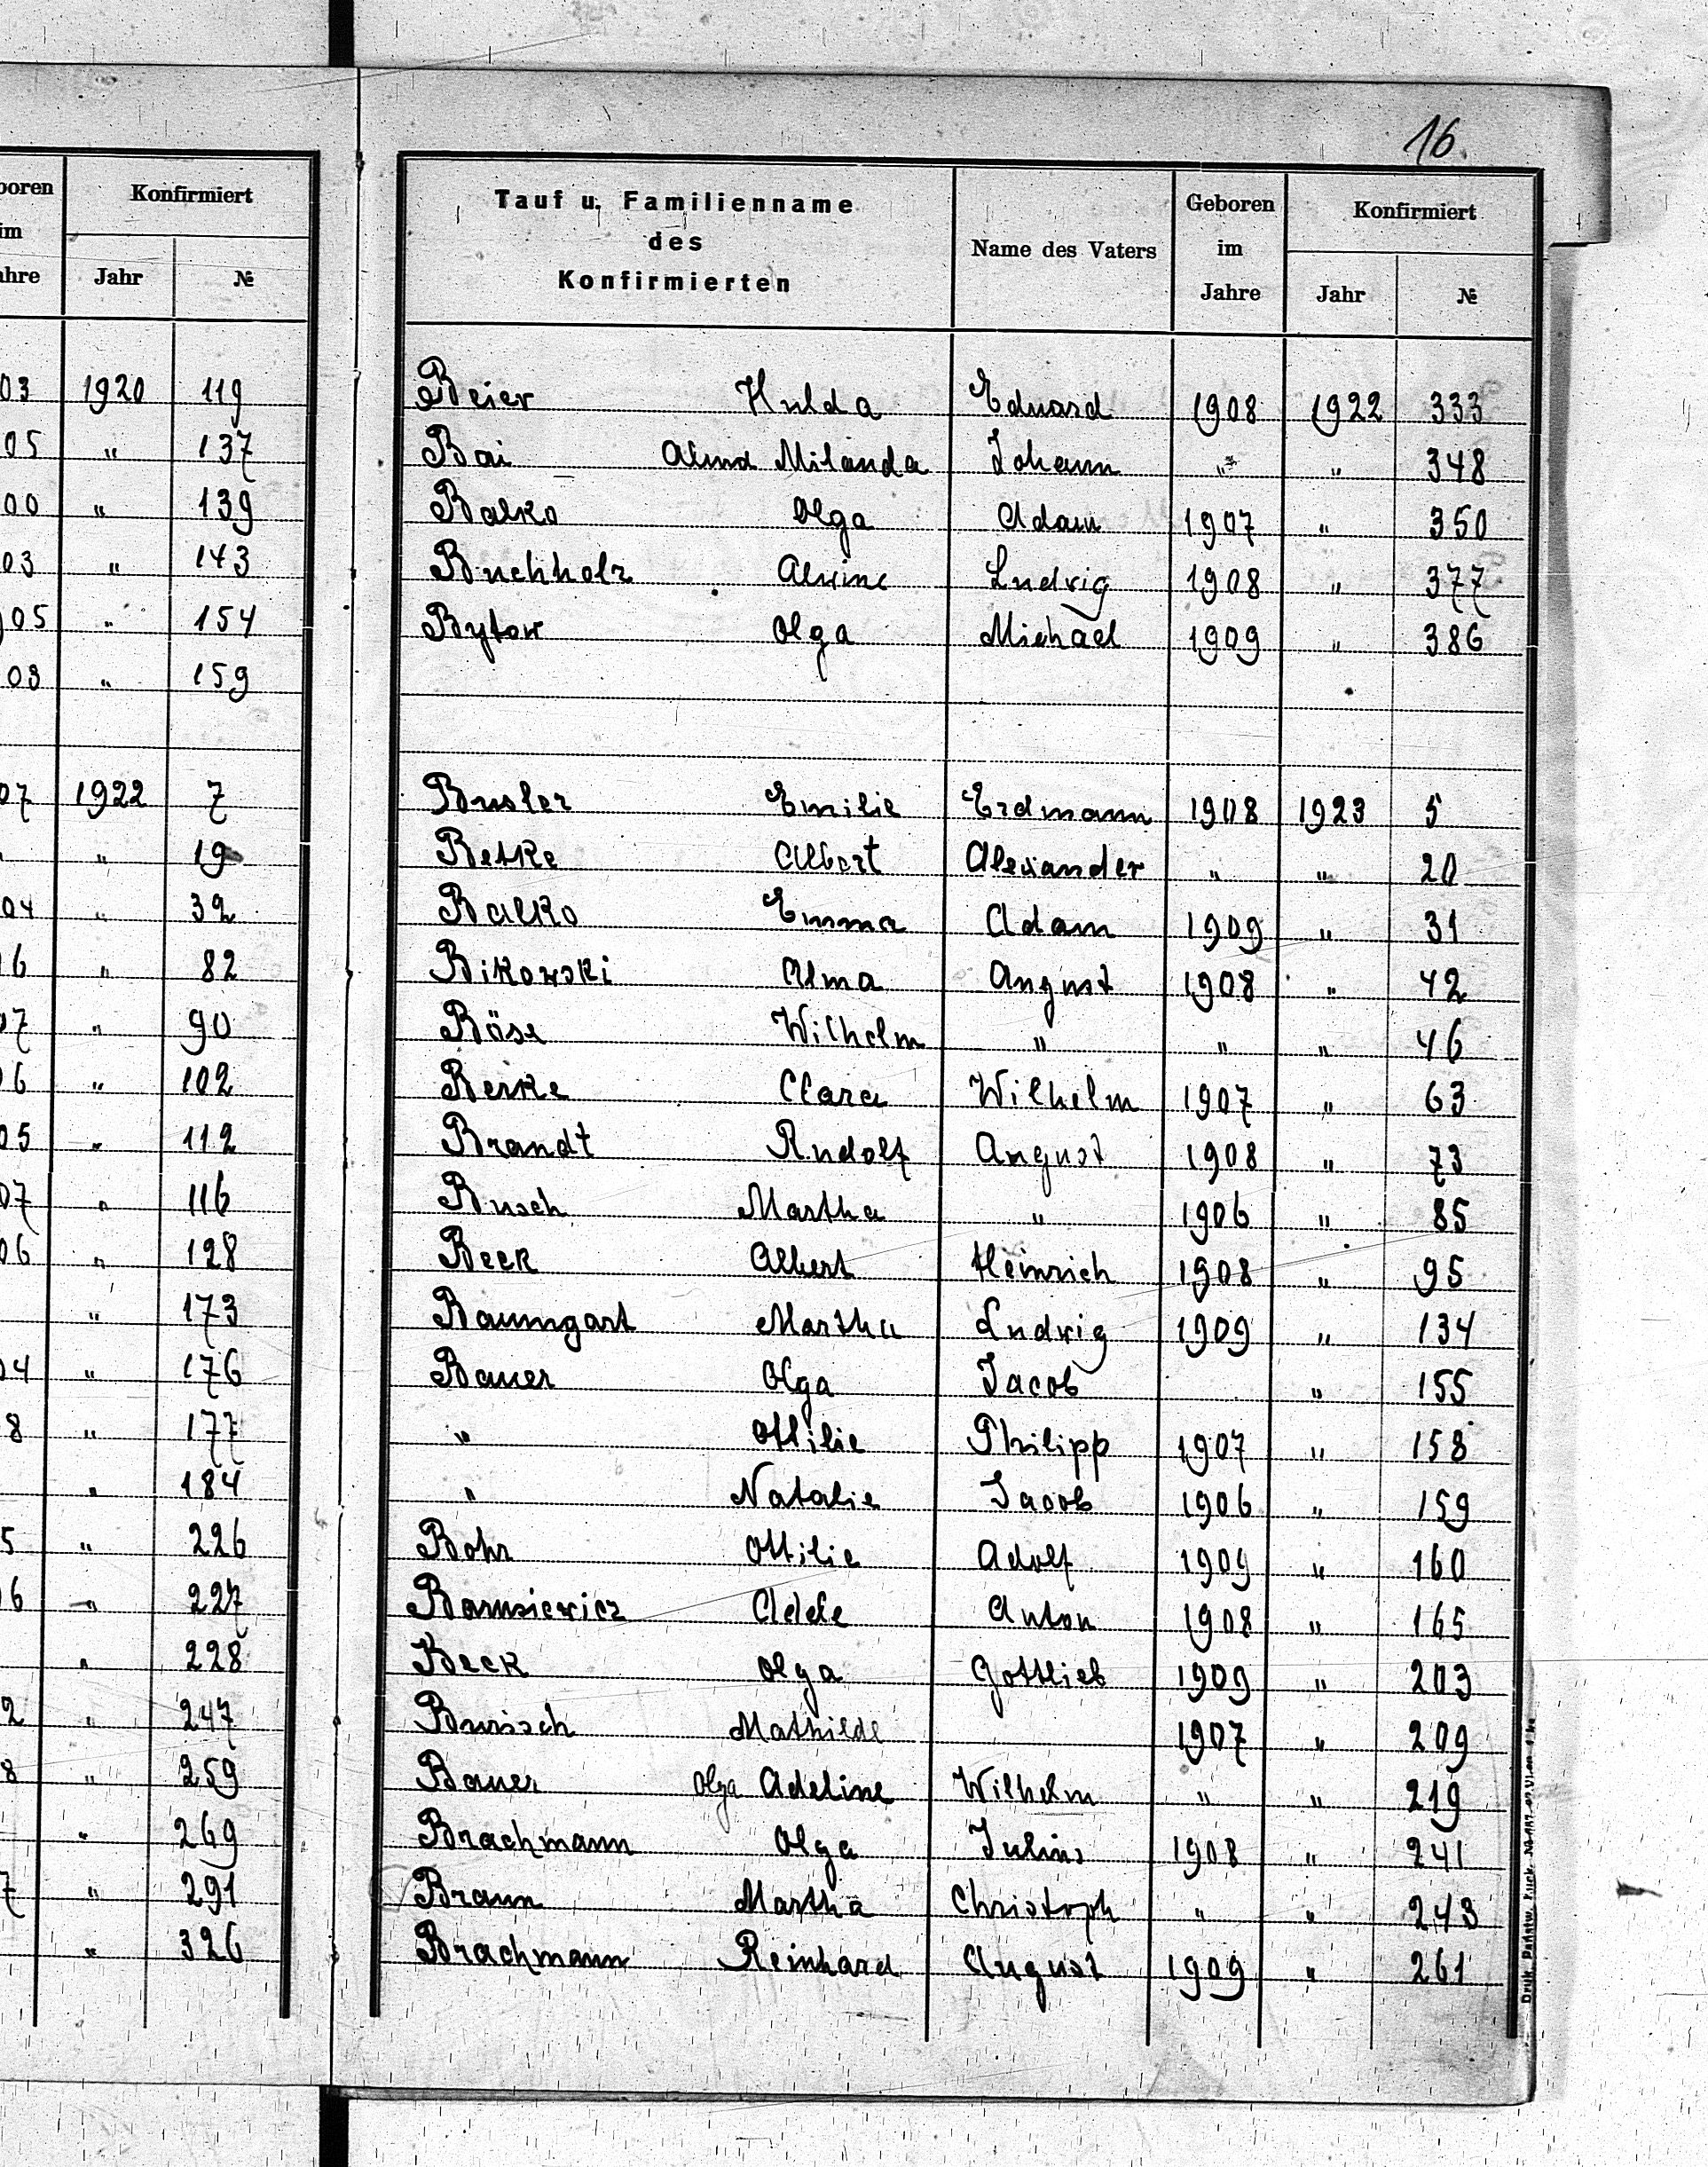 16.
boren
im
ahre
Konfirmiert
Jahr №
03 1920 119
05 " 137
00 " 139
03 " 143
05 " 154
03 " 159
07 1922 7
" 19
04 " 32
6 " 82
07 " 90
06 " 102
05 " 112
07 " 116
06 " 128
" 173
04 " 176
8 " 177
" 184
5 " 226
06 " 227
" 228
2 " 247
8 " 259
" 269
7 " 291
" 326
Tauf u. Familienname
des
Konfirmierten
Name des Vaters
Geboren
im
Jahre
Konfirmiert
Jahr №
Beier Hulda Eduard 1908 1922 333
Bai Alma Milanda Johann " " 348
Balko Olga Adam 1907 " 350
Buchholz Alwine Ludwig 1908 " 377
Bytow Olga Michael 1909 " 386
Busler Emilie Erdmann 1908 1923 5
Betke Albert Alexander " " 20
Balko Emma Adam 1909 " 31
Bikowski Alma August 1908 " 42
Böse Wilhelm " " " 46
Clara Wilhelm 1907 " 63
Brandt Rudolf August 1908 " 73
Busch Martha " 1906 " 85
Beck Albert Heinrich 1908 " 95
Baumgart Martha Ludwig 1909 " 134
Bauer Olga Jacob " 155
" Ottilie Philipp 1907 " 158
" Natalie Jacob 1906 " 159
Bohr Ottilie Adolf 1909 " 160
Adele Anton 1908 " 165
Beck Olga Gottlieb 1909 " 203
Burisch Mathilde 1907 " 209
Bauer Olga Adeline Wilhelm " " 219
Brachmann Olga Julius 1908 " 241
Braun Martha Christoph " " 243
Brachmann Reinhard August 1909 " 261